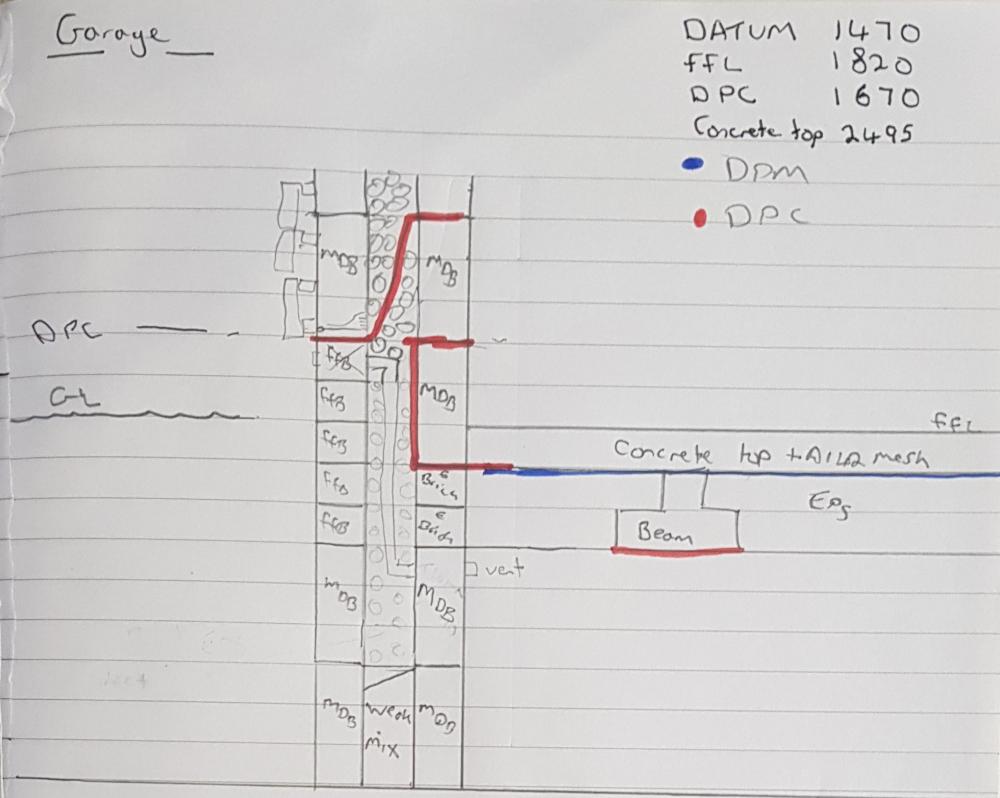 Garage
DATUM 1470
FFL 1820
DPC 1670
Concrete top 2495
DPM
DPC
MDB
MDB
DPC
FFB
MDB
GL
FFB
FFL
FFB
Concrete top + A142 mesh
FFB
E Brick
EPS
FFB
E Brick
Beam
vent
MDB
MDB
MDB
weak mix
MDB